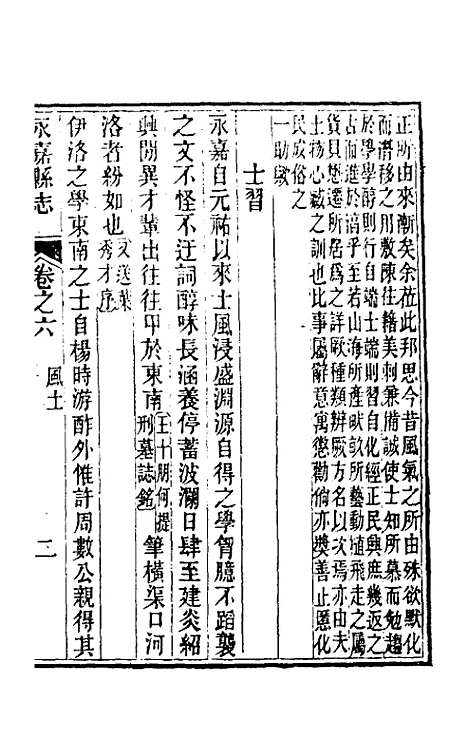 正所由來漸矣余莅此邦思今昔風氣之所由殊欲默化
而潛移之用敷陳往轍美刺兼備誠使士知所慕而勉趨
於學學醇則行自端士端則習自化經正民興庶幾返之
古而進於滈乎至若山海所產畎畝所藝動植飛走之屬
貨貝懋遷所居爲之詳厥種類辨厥方名以次焉亦由夫
土物心臧之訓也比事屬辭意寓懲勸倘亦獎善止慝化
民成俗之
一助歟
士習
永嘉自元祐以來士風浸盛淵源自得之學胷臆不蹈襲
之文不怪不迂詞醇味長涵養停蓄波瀾日肆至建炎紹
興間異才輩出往往甲於東南王十朋何提刑墓誌銘筆橫渠口河
洛者紛如也又送葉秀才序
伊洛之學東南之士自楊時游酢外惟許周數公親得其
永嘉縣志 卷之六 風土 三